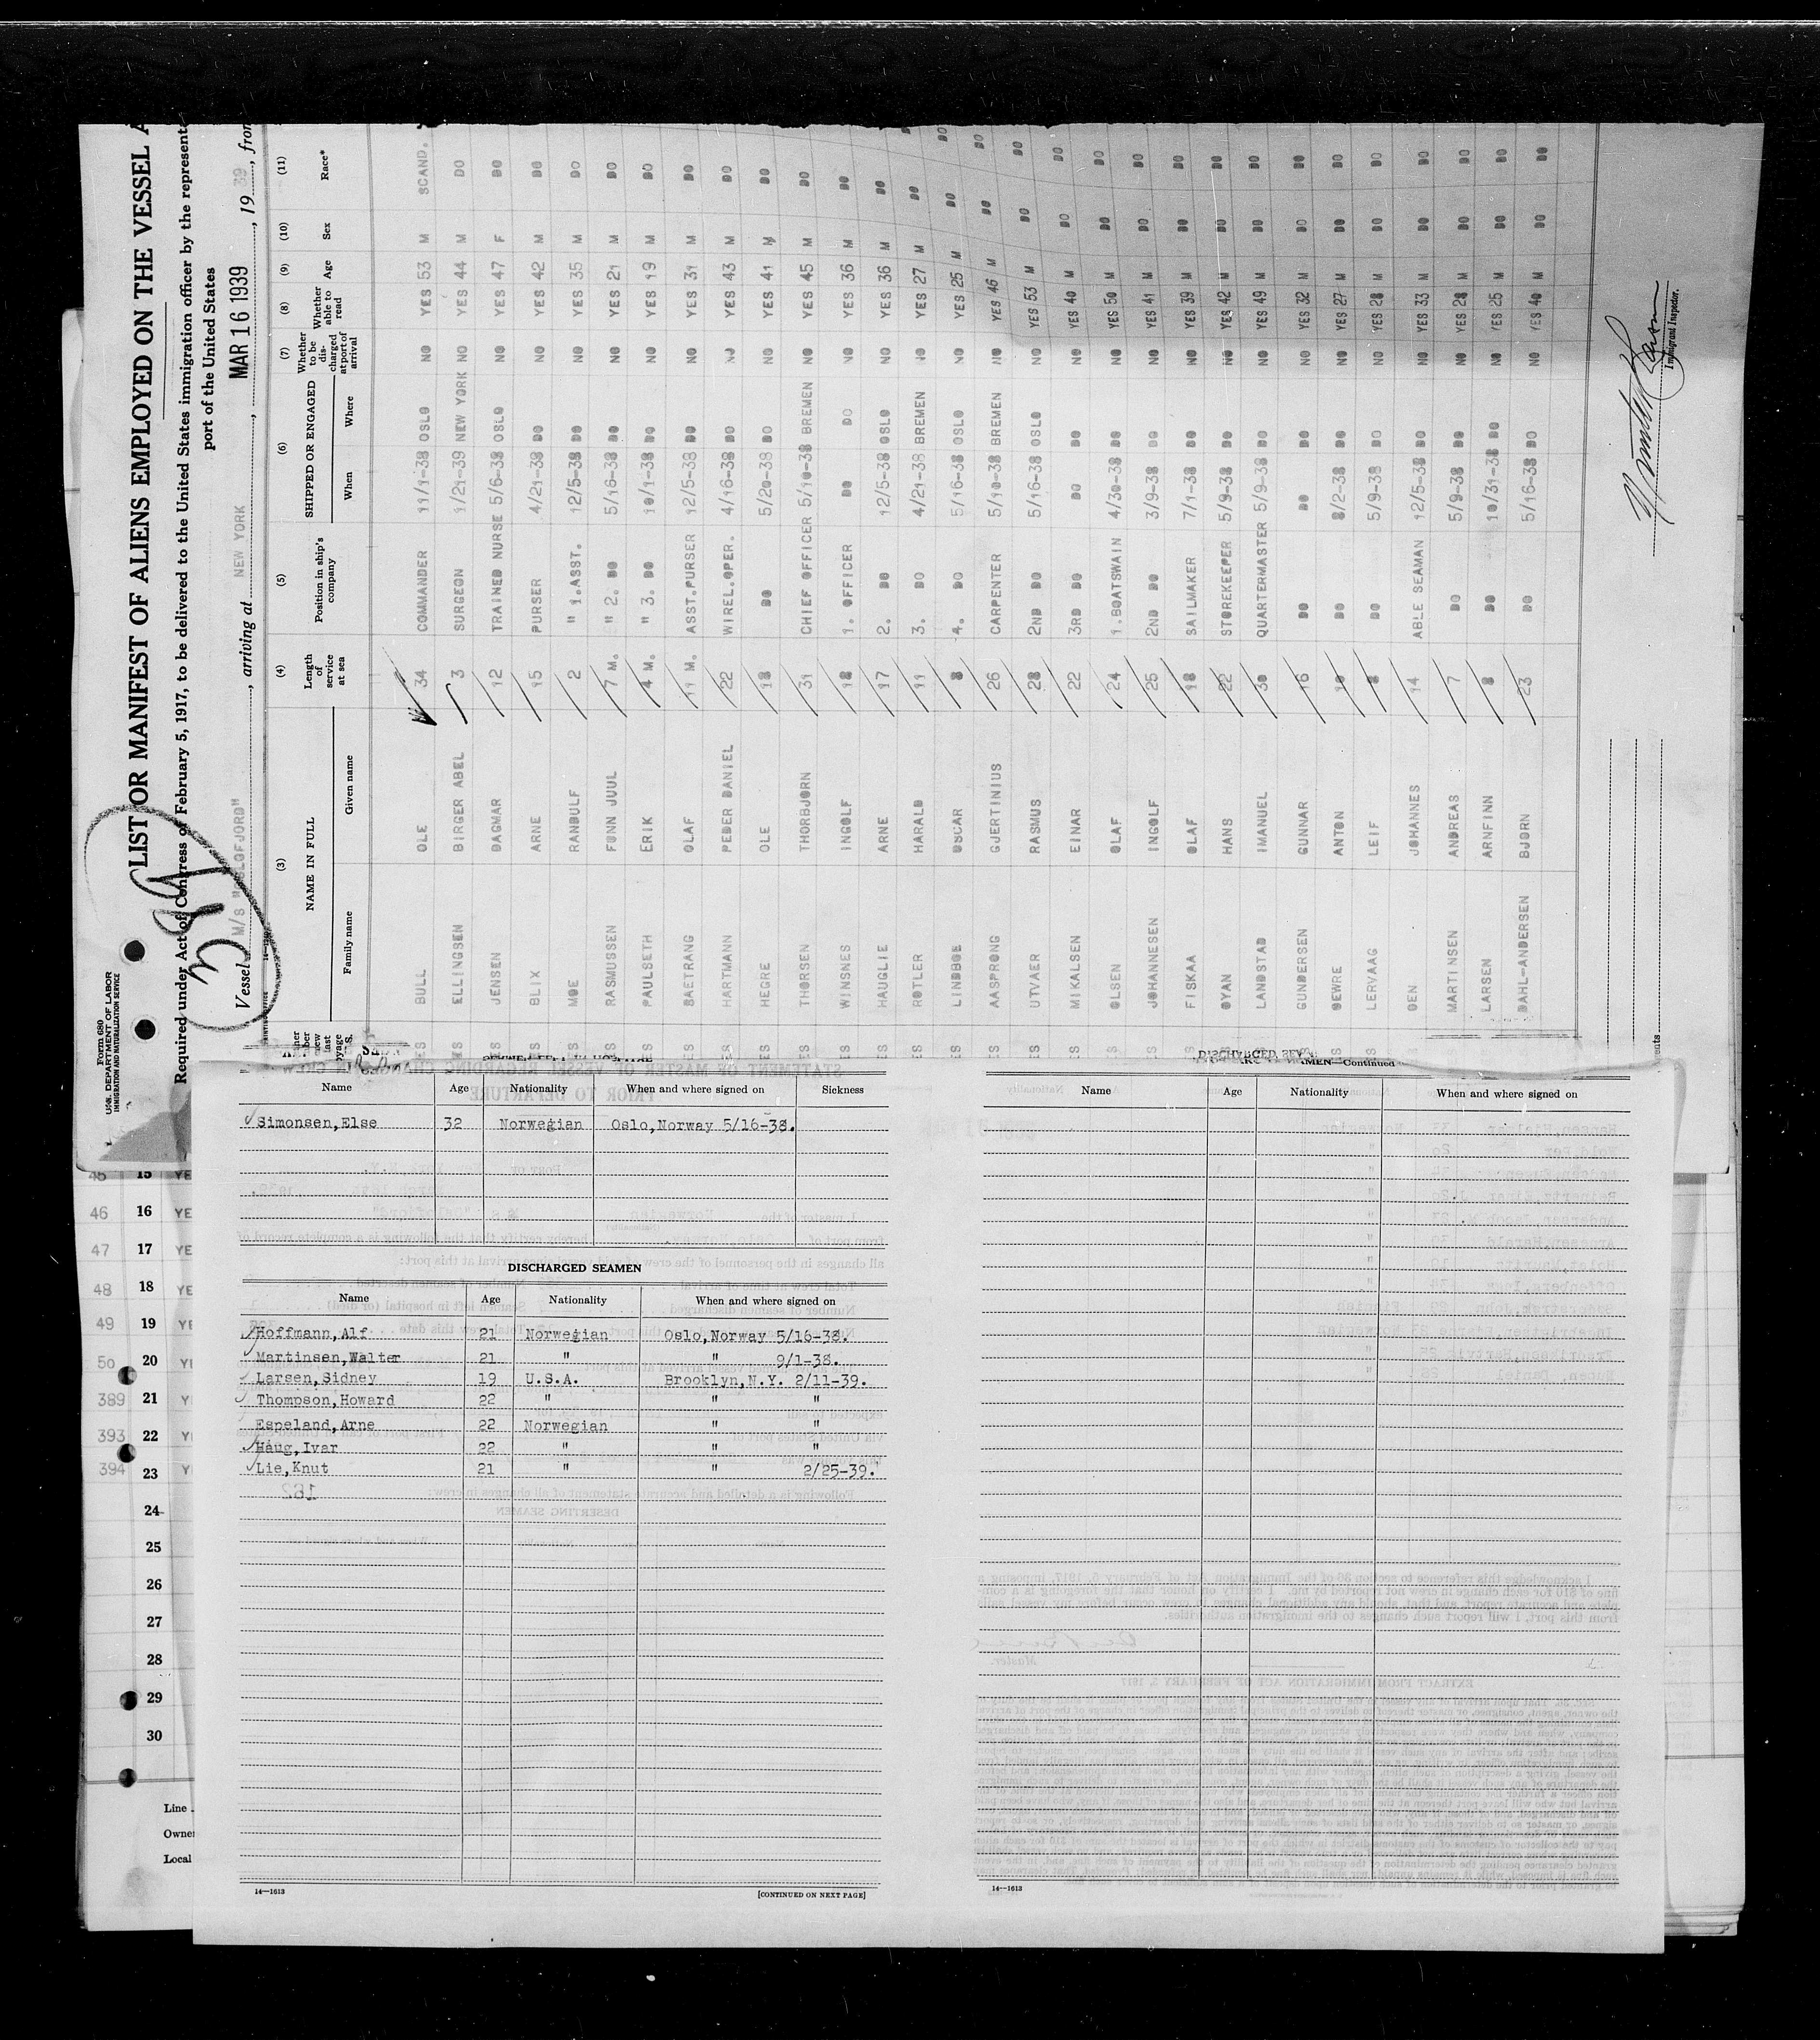 Form 680
U.S. DEPARTMENT OF LABOR
IMMIGRATION AND NATURALIZATION SERVICE
LIST OR MANIFEST OF ALIENS EMPLOYED ON THE VESSEL A
Required under Act of Congress of February 5, 1917, to be delivered to the United States immigration officer by the represent
port of the United States
Vessel M/S "OSLOFJORD", arriving at NEW YORK, MAR 16 1939, 19 39, from
(3) (4) (5) (6) (7) (8) (9) (10) (11)
NAME IN FULL Length of service at sea Position in ship's company SHIPPED OR ENGAGED Whether to be discharged at port of arrival Whether able to read Age Sex Race*
Family name Given name When Where
BULL OLE 34 COMMANDER 11/1-38 OSLO NO YES 53 M SCAND.
ELLINGSEN BIRGER ABEL 3 SURGEON 1/21-39 NEW YORK NO YES 44 M DO
JENSEN DAGMAR 12 TRAINED NURSE 5/6-38 OSLO NO YES 47 F DO
BLIX ARNE 15 PURSER 4/21-38 DO NO YES 42 M DO
MOE RANDULF 2 " 1.ASST. 12/5-38 DO NO YES 35 M DO
RASMUSSEN FUNN JUUL 7 M. " 2. DO 5/16-38 DO NO YES 21 M DO
PAULSETH ERIK 4 M. " 3. DO 10/1-38 DO NO YES 19 M DO
SAETRANG OLAF 11 M. ASST.PURSER 12/5-38 DO NO YES 31 M DO
HARTMANN PEDER DANIEL 22 WIREL.OPER. 4/16-38 DO NO YES 43 M DO
HEGRE OLE 18 DO 5/20-38 DO NO YES 41 M DO
THORSEN THORBJORN 31 CHIEF OFFICER 5/10-38 BREMEN NO YES 45 M DO
WINSNES INGOLF 18 1. OFFICER DO DO NO YES 36 M DO
HAUGLIE ARNE 17 2. DO 12/5-38 OSLO NO YES 36 M DO
ROTLER HARALD 11 3. DO 4/21-38 BREMEN NO YES 27 M DO
LINDBOE OSCAR 8 4. DO 5/16-38 OSLO NO YES 25 M DO
AASPRONG GJERTINIUS 26 CARPENTER 5/10-38 BREMEN NO YES 46 M DO
UTVAER RASMUS 28 2ND DO 5/16-38 OSLO NO YES 53 M DO
MIKALSEN EINAR 22 3RD DO DO DO NO YES 40 M DO
OLSEN OLAF 24 1.BOATSWAIN 4/30-38 DO NO YES 50 M DO
JOHANNESEN INGOLF 25 2ND DO 3/9-38 DO NO YES 41 M DO
FISKAA OLAF 18 SAILMAKER 7/1-38 DO NO YES 39 M DO
OYAN HANS 22 STOREKEEPER 5/9-38 DO NO YES 42 M DO
LANDSTAD IMANUEL 30 QUARTERMASTER 5/9-38 DO NO YES 49 M DO
GUNDERSEN GUNNAR 16 DO DO DO NO YES 32 M DO
OEWRE ANTON 10 DO 8/2-38 DO NO YES 27 M DO
LERVAAG LEIF 8 DO 5/9-38 DO NO YES 28 M DO
OEN JOHANNES 14 ABLE SEAMAN 12/5-38 DO NO YES 33 M DO
MARTINSEN ANDREAS 7 DO 5/9-38 DO NO YES 28 M DO
LARSEN ARNFINN 8 DO 10/31-38 DO NO YES 25 M DO
DAHL-ANDERSEN BJORN 23 DO 5/16-38 DO NO YES 40 M DO
Immigrant Inspector.
Name Age Nationality When and where signed on Sickness
Simonsen,Else 32 Norwegian Oslo,Norway 5/16-38.
DISCHARGED SEAMEN
Name Age Nationality When and where signed on
Hoffmann,Alf 21 Norwegian Oslo,Norway 5/16-38.
Martinsen,Walter 21 " " 9/1-38.
Larsen,Sidney 19 U.S.A. Brooklyn,N.Y. 2/11-39.
Thompson,Howard 22 " " "
Espeland,Arne 22 Norwegian " "
Haug,Ivar 22 " " "
Lie,Knut 21 " " 2/25-39.
14—1613 [CONTINUED ON NEXT PAGE]
SEAMEN—Continued
Name Age Nationality When and where signed on
14—1613
45 15 YE
46 16 YE
47 17 YE
48 18 YE
49 19 YE
50 20 YE
389 21 YE
393 22 YE
394 23 Y
24
25
26
27
28
29
30
Line
Owner
Local